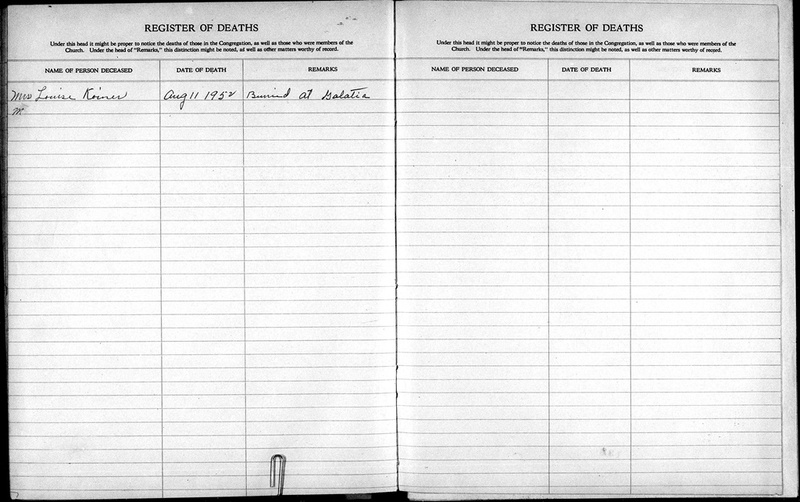 REGISTER OF DEATHS
Under this head it might be proper to notice the deaths of those in the Congregation, as well as those who were members of the
Church. Under the head of "Remarks," this distinction might be noted, as well as other matters worthy of record.
NAME OF PERSON DECEASED DATE OF DEATH REMARKS
Mrs Louise Koiner Aug 11 1952 Burried at Galatia
M
REGISTER OF DEATHS
Under this head it might be proper to notice the deaths of those in the Congregation, as well as those who were members of the
Church. Under the head of "Remarks," this distinction might be noted, as well as other matters worthy of record.
NAME OF PERSON DECEASED DATE OF DEATH REMARKS